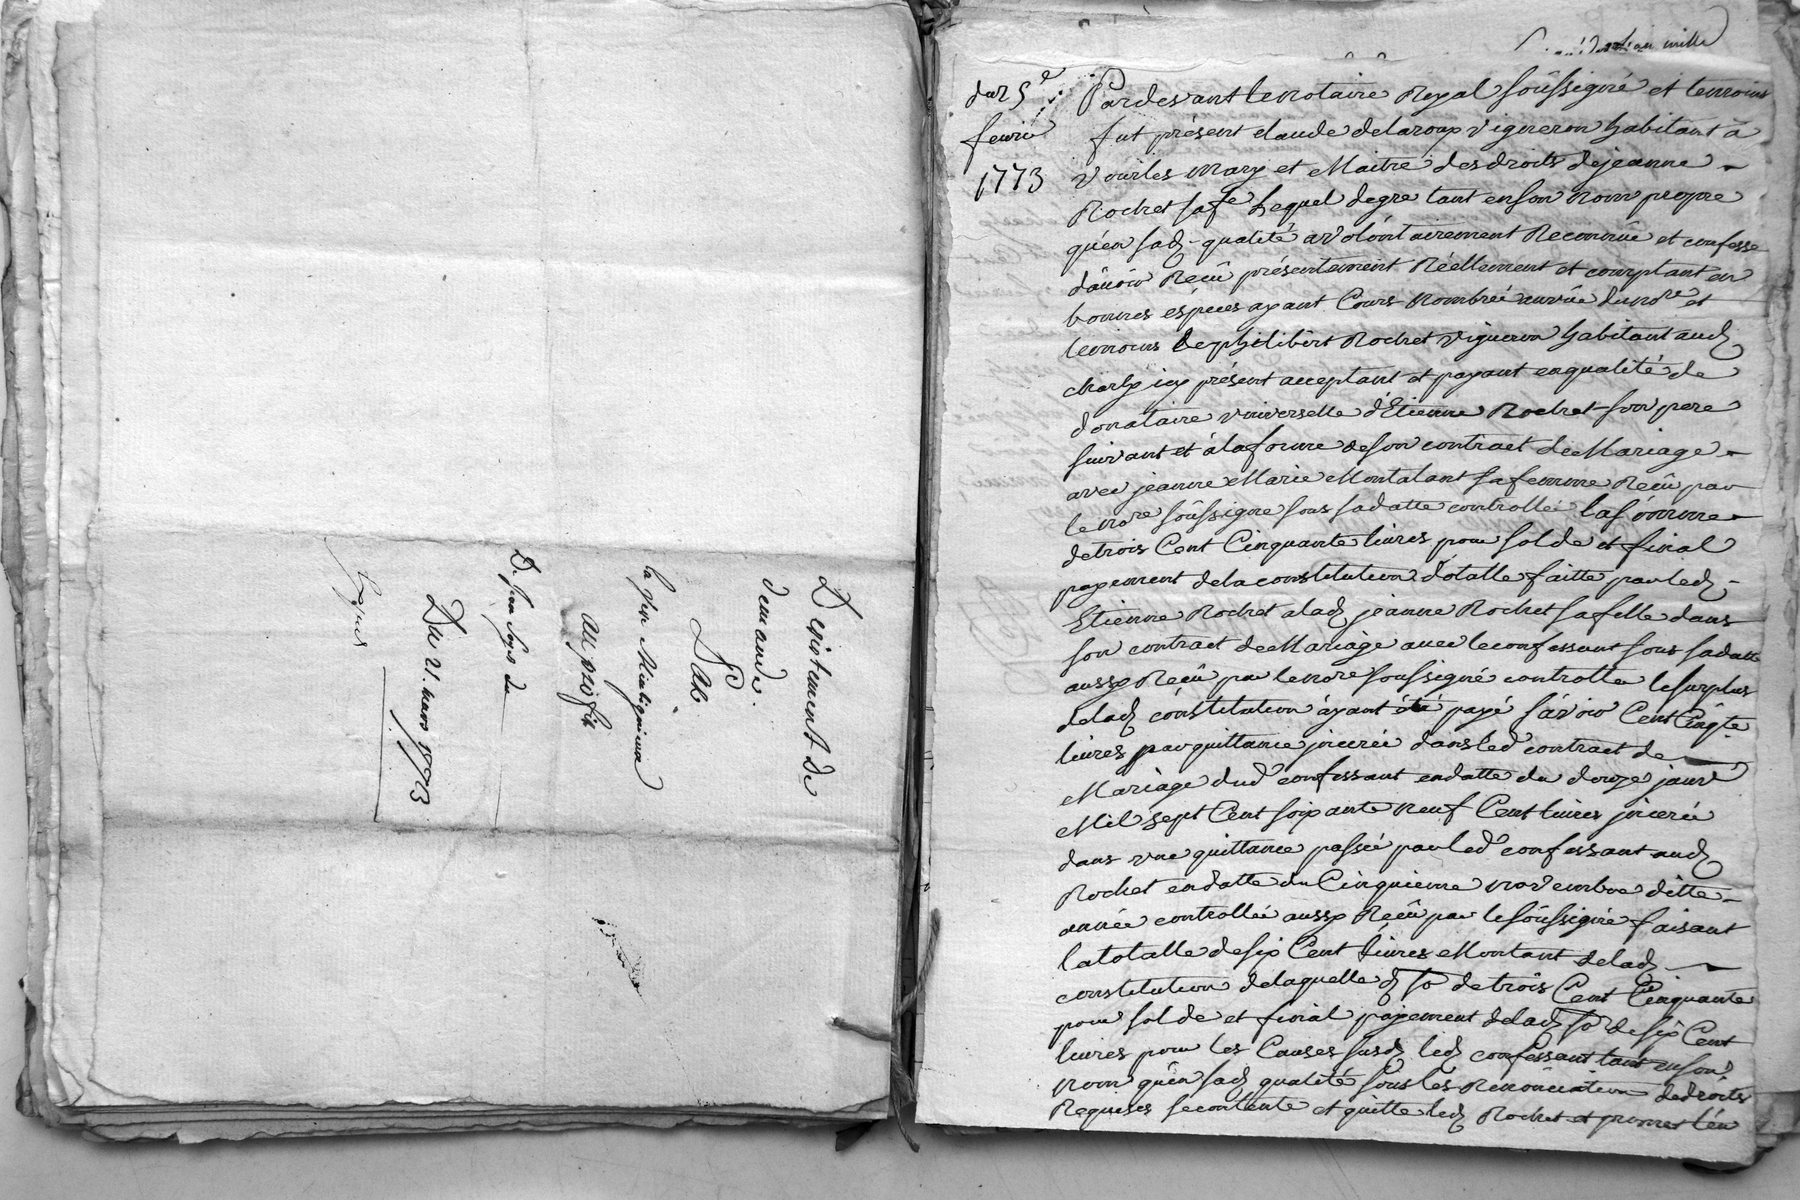 Desistement de
demande.
Par
la ...
Au profit
De Jean ... du
Du 21. mars 1773
mille
du 5e
fevrié
1773
Pardevant le notaire Royal soûssigné et temoins
fut présent claude delaroux vigneron habitant à
Vourles mary et Maitre des droits de jeanne
Rochet sa fe Lequel de gre tant en son nom propre
qu'en sad. qualité a volontairement Reconnüe et confesse
d'âvoir Reçû présentement Réellement et comptant en
bonnes espéces ayant Cours nombrée a vüe du nore et
temoins de philibert Rochet vigneron habitant aud.
charly icy présent acceptant et payant en qualité de
donataire universelle d'Etienne Rochet son pere
suivant et à la forme de son contract de Mariage
avec jeanne Marie Montalant sa femme Reçû par
le nore soûssigné sous sa datte controllé la sômme
de trois Cent Cinquante livres pour solde et final
payement de la constitution dotalle faitte par led.
Etienne Rochet a lad. jeanne Rochet sa fille dans
son contract de Mariage avec le confessant sous sa datte
aussy Reçû par le nore soussigné controllé le surplus
de lad. cônstitution äyant été payé sâvoir Cent Cinqte
livres par quittance jncerée dans led. contract de
Mariage dud. confessant en datte du douze janvr
Mil sept Cent soixante neuf Cent livres jncerée
dans une quittance passée par led. confessant aud.
Rochet en datte du Cinquieme novembre ditte
année controllée aussy Reçû par le soûssigné faisant
la totalle de six Cent livres Montant de lad.
constitution de laquelle d. so de trois Cent Cinquante
pour solde et final payement de lad. so de six Cent
livres pour les Causes susd. led. confessant tant en son
nom qu'en sad. qualité sous les Renônciation de droits
Requises se contente et quitte led. Rochet et promet l'en